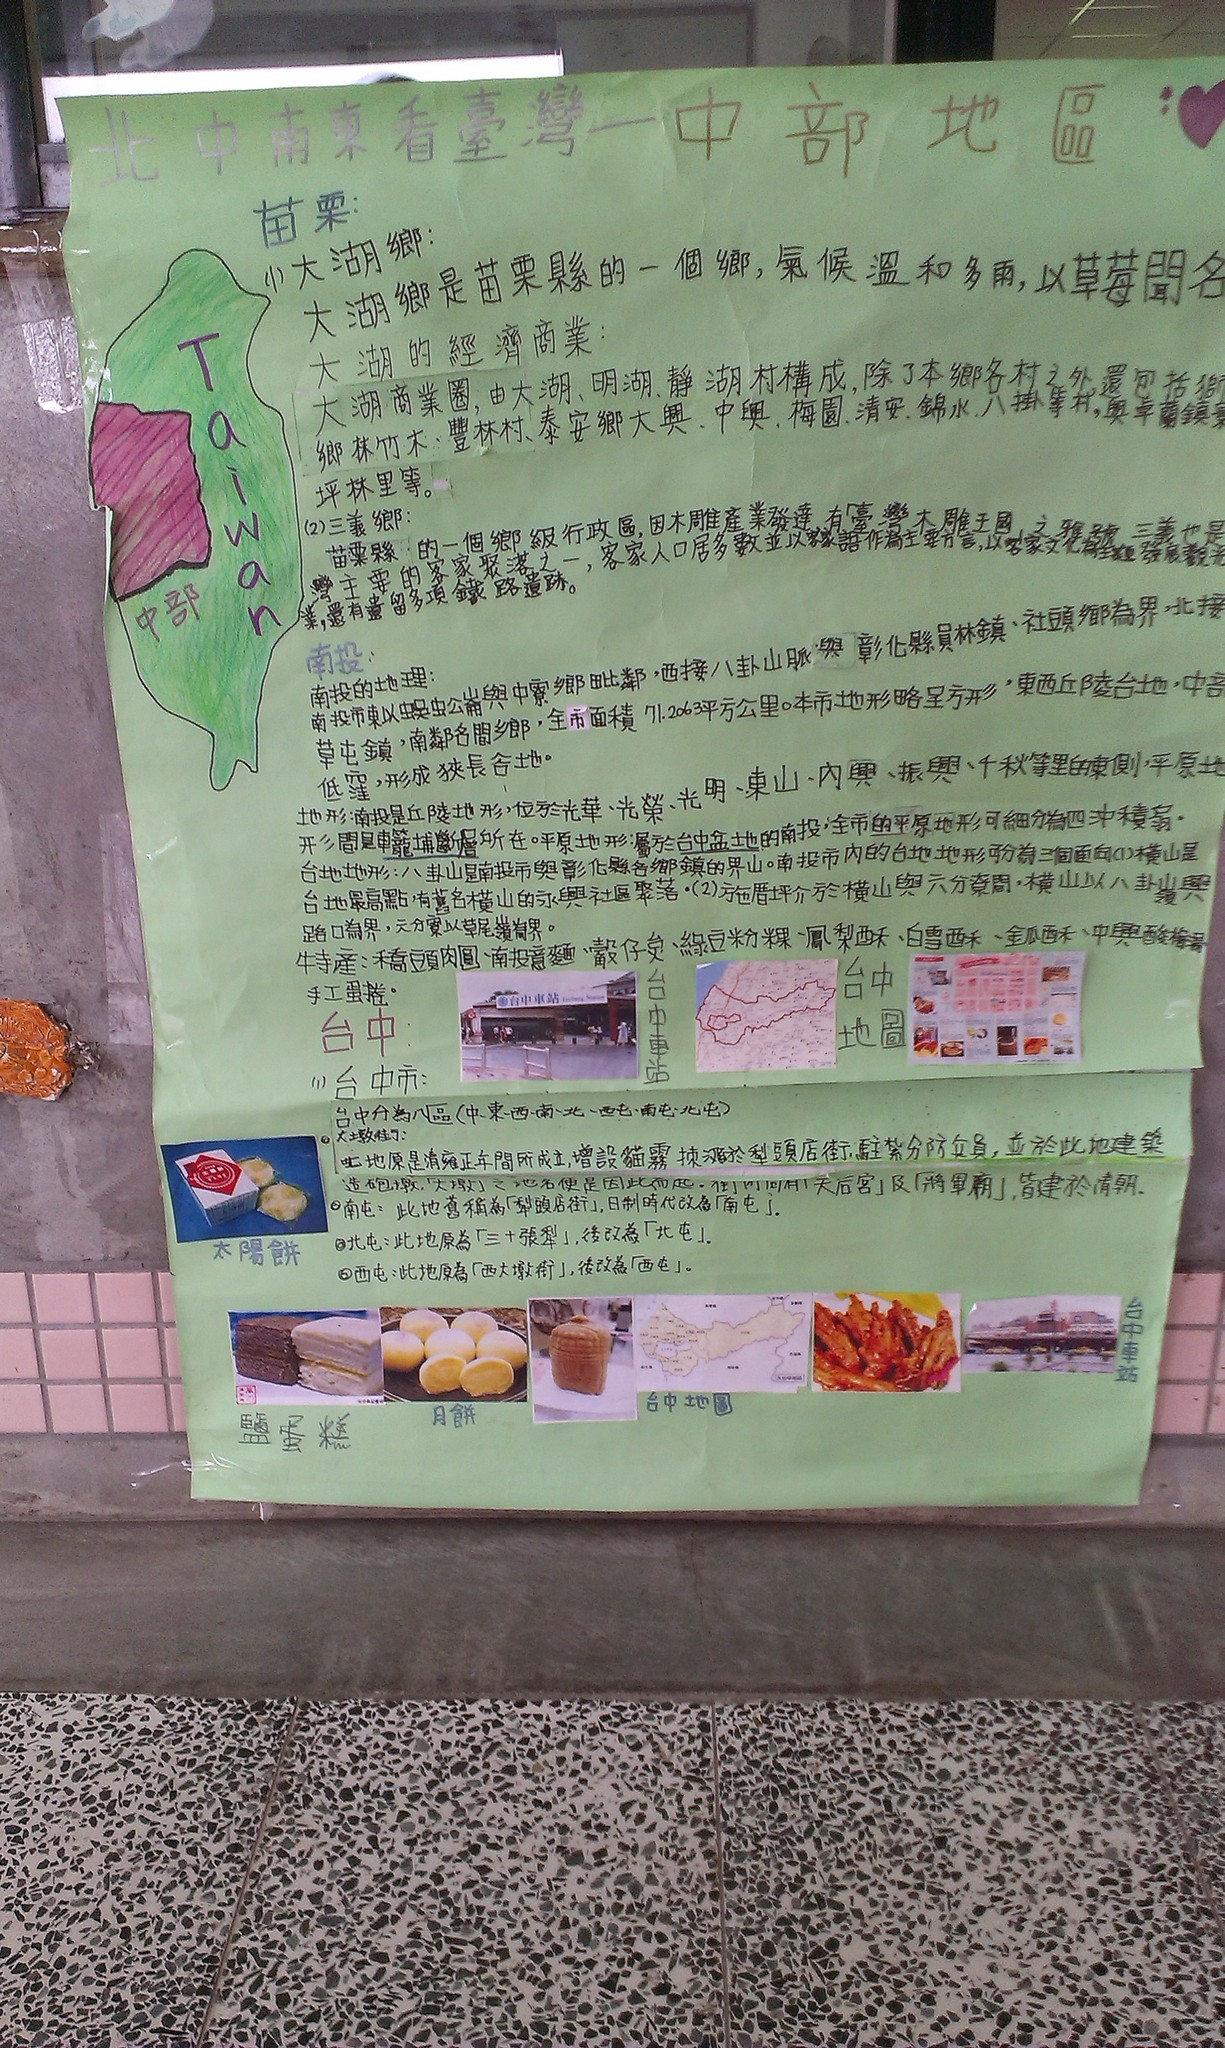 北中南東看臺灣—中部地區
苗栗:
(1)大湖鄉:
大湖鄉是苗栗縣的一個鄉,氣候溫和多雨,以草莓聞名
大湖的經濟商業:
大湖商業圈,由大湖、明湖、靜湖村構成,除了本鄉各村之外還包括獅
鄉林竹木、豐林村、泰安鄉大興、中興、梅園、清安、錦水、八卦等村,與卓蘭鎮
坪林里等。
(2)三義鄉:
苗栗縣 的一個鄉級行政區,因木雕產業發達,有「臺灣木雕王國」之雅號 三義也是
灣主要的客家聚落之一,客家人口居多數並以客家語作為主要方言,以客家文化為 發展觀光
業,還有遺留多項鐵路遺跡。
Taiwan
中部
南投:
南投的地理:
南投市東以蜈蚣崙與中寮鄉毗鄰,西接八卦山脈與彰化縣員林鎮、社頭鄉為界,北接
草屯鎮,南鄰名間鄉,全市面積71.2063平方公里。本市地形略呈方形,東西丘陵台地,中部
低窪,形成狹長谷地。
地形:南投是丘陵地形,位於光華、光榮、光明、東山、內興、振興、千秋等里的東側,平原地
形間是車籠埔斷層所在。平原地形:屬於台中盆地的南投,全市的平原地形可細分為四沖積扇。
台地地形:八卦山是南投市與彰化縣各鄉鎮的界山。南投市內的台地地形可分為三個面向(1)橫山是
台地最高點,有舊名橫山的永興社區聚落。(2)施厝坪介於橫山與六分寮間,橫山以八卦山與
路口為界,六分寮以草尾嶺為界。
特產:橋頭肉圓、南投意麵、穀仔炭、綠豆粉粿、鳳梨酥、白雪酥、金瓜酥、中興酸梅湯
手工蛋捲。
台中:
台中車站
台中車站
台中
地圖
(1)台中市:
台中分為八區(中、東、西、南、北、西屯、南屯、北屯)
大墩街:
此地原是清雍正年間所成立,增設貓霧捒汛於犁頭店街,駐紮分防兵員,並於此地建築
造砲墩,「大墩」之地名便是因此而起。街內尚有「天后宮」及「將軍廟」,皆建於清朝.
南屯:此地舊稱為「犁頭店街」,日制時代改為「南屯」.
北屯:此地原為「三十張犁」,後改為「北屯」.
西屯:此地原為「西大墩街」,後改為「西屯」.
太陽餅
鹽蛋糕
月餅
台中地圖
台中車站